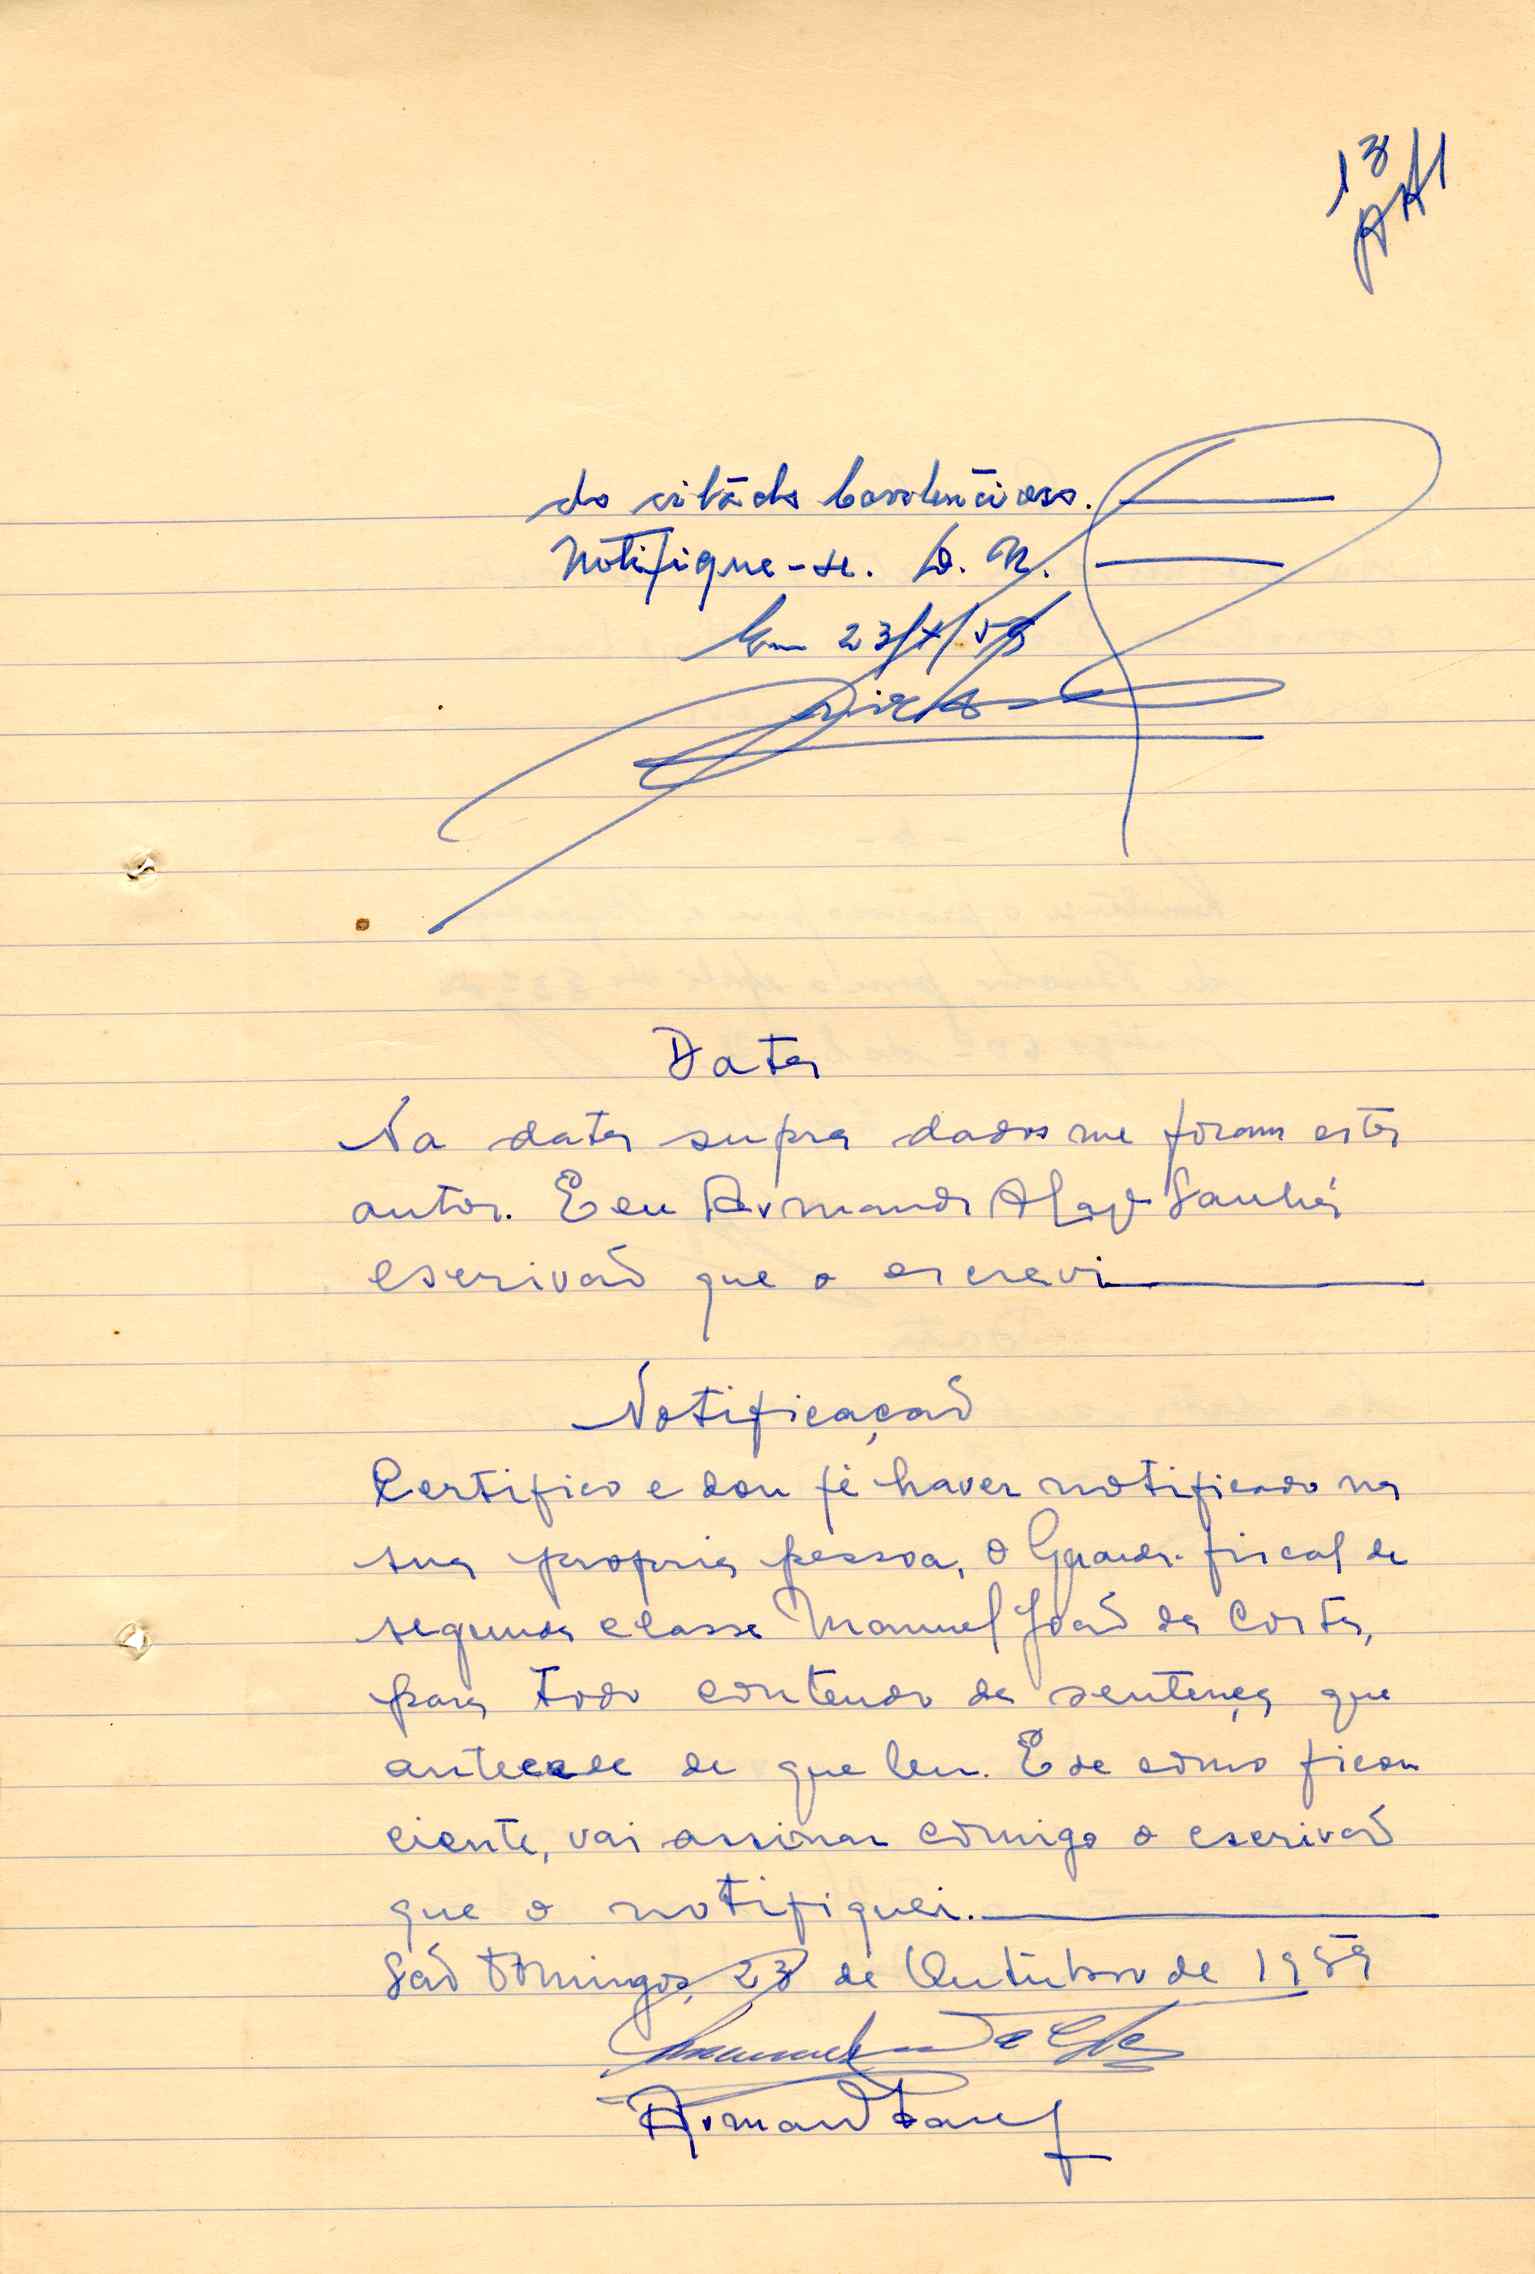 13
do citado Contencioso.
Notifique-se. D. N.
Em 23/X/59
Data
Na data supra dados me foram estes
autos. E eu Armando
escrivão que o escrevi
Notificação
Certifico e dou fé haver notificado na
sua propria pessoa, o Guarda fiscal de
segunda classe Manuel João da Costa,
para todo contendo da sentença que
antecede de que leu. E de como ficou
ciente, vai assinar comigo o escrivão
que o notifiquei.
São Domingos, 23 de Outubro de 1959
Manuel da Costa
Armando